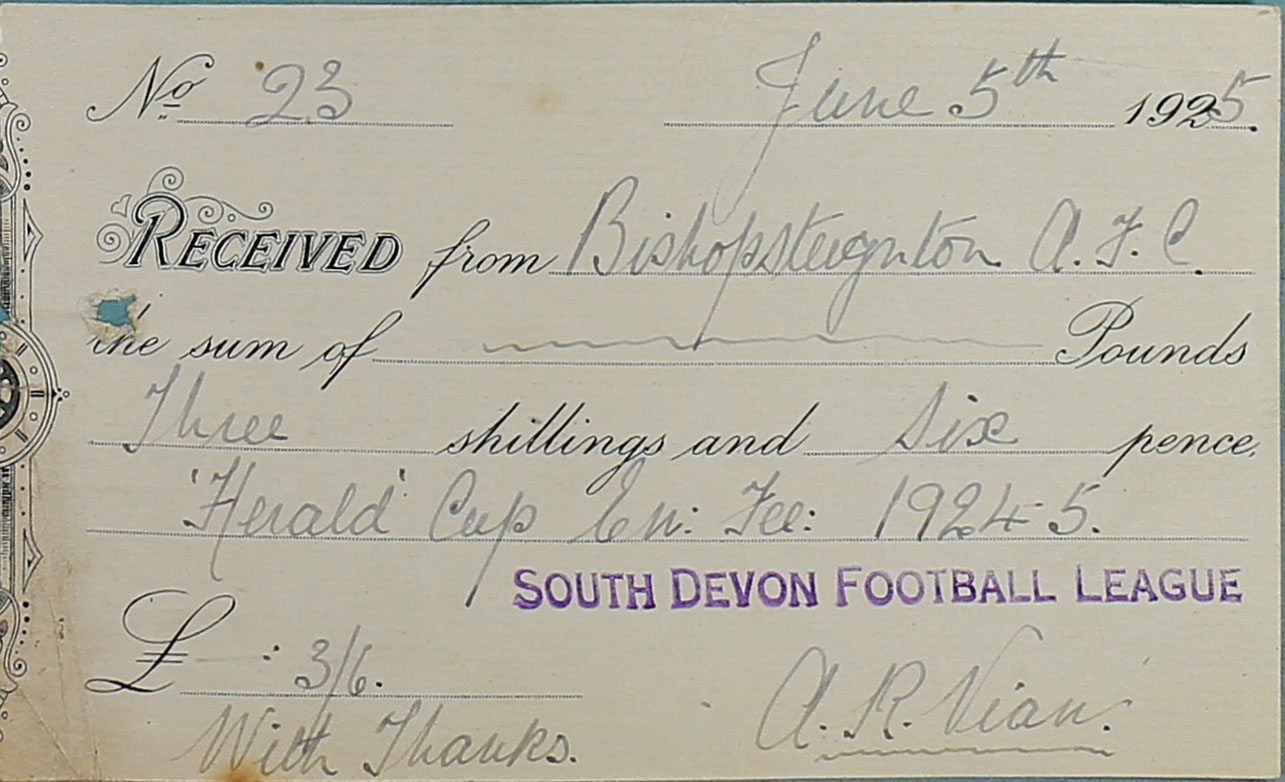 No 23 June 5th 1925.
RECEIVED from Bishopsteignton A.F.C.
the sum of Pounds
Three shillings and Six pence.
'Herald' Cup En: Fee: 1924-5.
SOUTH DEVON FOOTBALL LEAGUE
£ - : 3/6.
With Thanks. A. R. Vian.